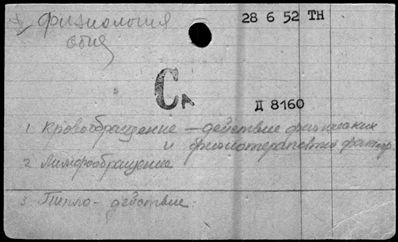 физиология
общ
28 6 52 ТН
Ск
Д 8160
1 Кровообращение – действие физических
и физиотерапевтич фактор
2 Лимфообращение
3 Тепло - действие.